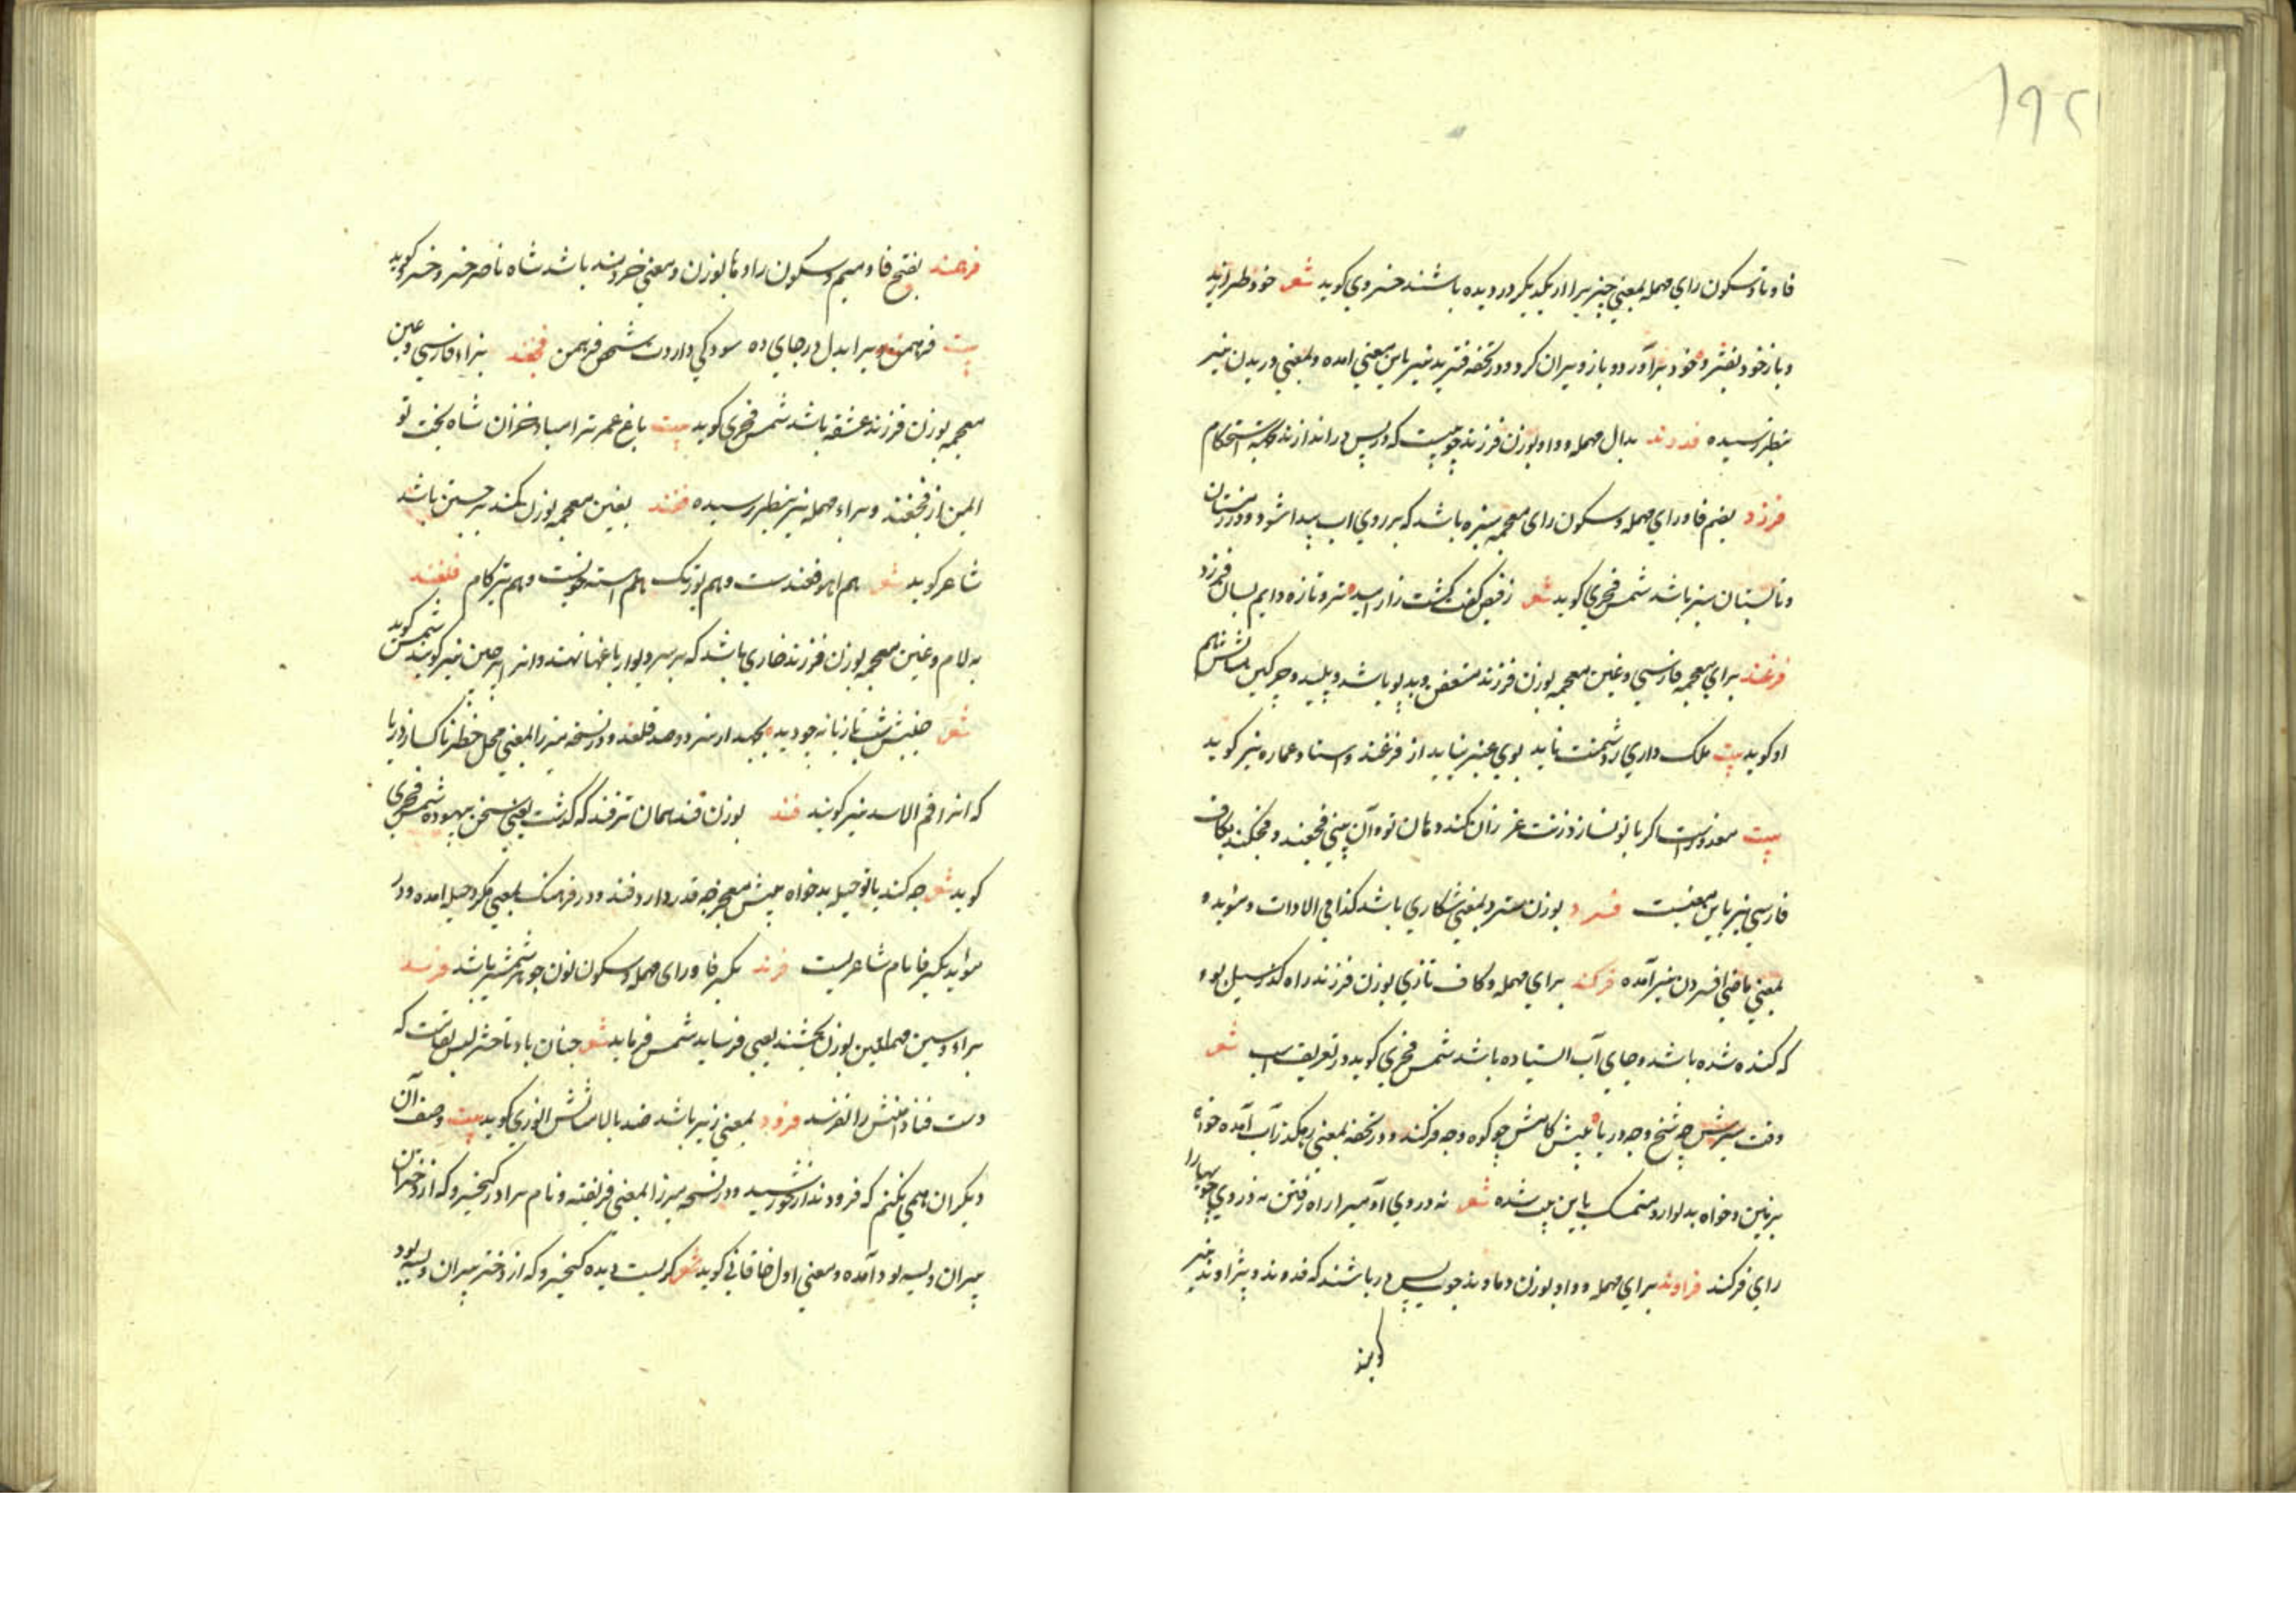 ۱۹۲
فا و تا و سکون رای مهمله بمعنی چیزیرا از یکدیکر دریده باشند خسروی کوید شعر خود طرازید
و باز خود بفترد خود برآورد و باز ویران کرد و در تحفه فترید نیز باین معنی امده و بمعنی دریدن نیز
بنظر رسیده فدرند بدال مهمله و واو بوزن فرزند چوبیست که در پس در اندازند بجهة استحکام
فرزد بضم فا و رای مهمله و سکون زای معجمه سبزه باشد که بر روی اب پیدا شود و در زمستان
و تابستان سبز باشد شمس فخری کوید شعر ز فیض کفت کشت زار امید تر و تازه دایم بسان فرزد
فرغند برای معجمه فارسی و غین معجمه بوزن فرزند متعفن و بدبو باشد و پلید و چرکین مثالش هم
او کوید بیت ملک داری ز دشمنت ناید بوی عنبر نیاید از فرغند و استاد عماره نیز کوید
بیت معذورست اکر با تو نسازد زنت ای غر زان کنده دهان تو و آن بینی فجغند و فجکند بکاف
فارسی نیز باین معنیست فسرد بوزن سترد بمعنی شکاری باشد کذا فی الادات و مؤید و
بمعنی ماضی افسردن نیز آمده فرکند برای مهمله و کاف تازی بوزن فرزند راه کذر سیل بود
که کنده شده باشد و جای آب ایستاده باشد شمس فخری کوید در تعریف اسب شعر
وقت سیرش چه شخ و چه دریا پیش کامش چه کوه و چه فرکند و در تحفه بمعنی رهکذر آب آمده خواه
بر زمین و خواه بدیوار و متمسک باین بیت شده شعر نه در وی آدمیرا راه رفتن نه در وی جویهارا
رای فرکند فراوند برای مهمله و واو بوزن دماوند چوب پس در باشند که فدوند و پژاوند نیز
کویند
فرهمند بفتح فا و میم و سکون را و ها بوزن و معنی خردمند باشد شاه ناصر خسرو خسرو کوید
بیت فرهمند و یرا بدل در جای ده سود کی داردت شخص فرهمن فجغند بزاء فارسی و غین
معجمه بوزن فرزند عشقه باشد شمس فخری کوید بیت باغ عمر ترا مباد خزان شاه بخت تو
ایمن از فجغند و براء مهمله نیز بنظر رسیده فغند بغین معجمه بوزن کمند برجستن باشد
شاعر کوید شعر هم اهو فغندست و هم یوزتک هم اهسته خویست و هم تیز کام فلغند
به لام و غین معجمه بوزن فرزند خاری باشد که بر سر دیوار باغها نهند و انرا پرچین نیز کویند شمس کوید
شعر جنبش تازیانه چو دید بجهد از سر دو صد فلغند و در نسخه میرزا بمعنی محل خطرناک از دریا
که انرا فم الاسد نیز کویند فند بوزن قند همان ترفند که کذشت یعنی سخن بیهوده شمس فخری
کوید شعر چه کند با تو حیل بدخواه پیش معجز چه قدر دارد فند و در فرهنک بمعنی مکر و حیله امده و در
مؤید بکسر فا نام شاعریست فرند بکسر فا و رای مهمله و سکون نون جوهر شمشیر باشد فرسد
براء و سین مهملتین بوزن بخشند یعنی فرساید شمس فرماید شعر چنان باد تا حشر لبس بقات که
دست فنا دامنش را نفرسد فرود بمعنی زیر باشد ضد بالا مثالش انوری کوید بیت وصف آن
دیکران همی نکنم که فرودند از خورشید و در نسخه میرزا بمعنی فریفته و نام برادر کیخسرو که از دختر
پیران ویسه بود آمده و معنی اول خاقانی کوید شعر کریست دیده کیخسرو که از دختر پیران ویسه بود